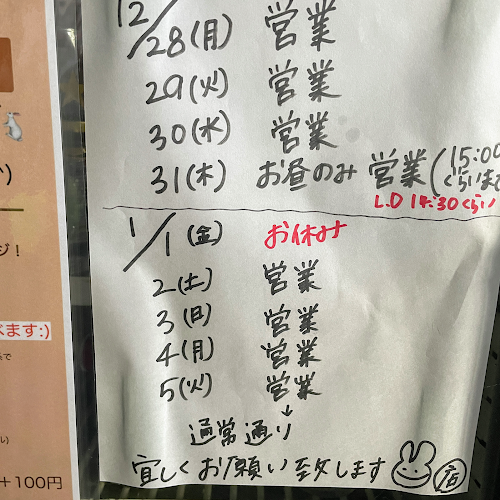 12/28(月) 営業
29(火) 営業
30(水) 営業
31(木) お昼のみ 営業(15:00
くらいまで
L.O 14:30くらい
1/1(金) お休み
2(土) 営業
3(日) 営業
4(月) 営業
5(火) 営業
↓
通常通り
宜しくお願い致します 店
ジ！
べます:)
+100円